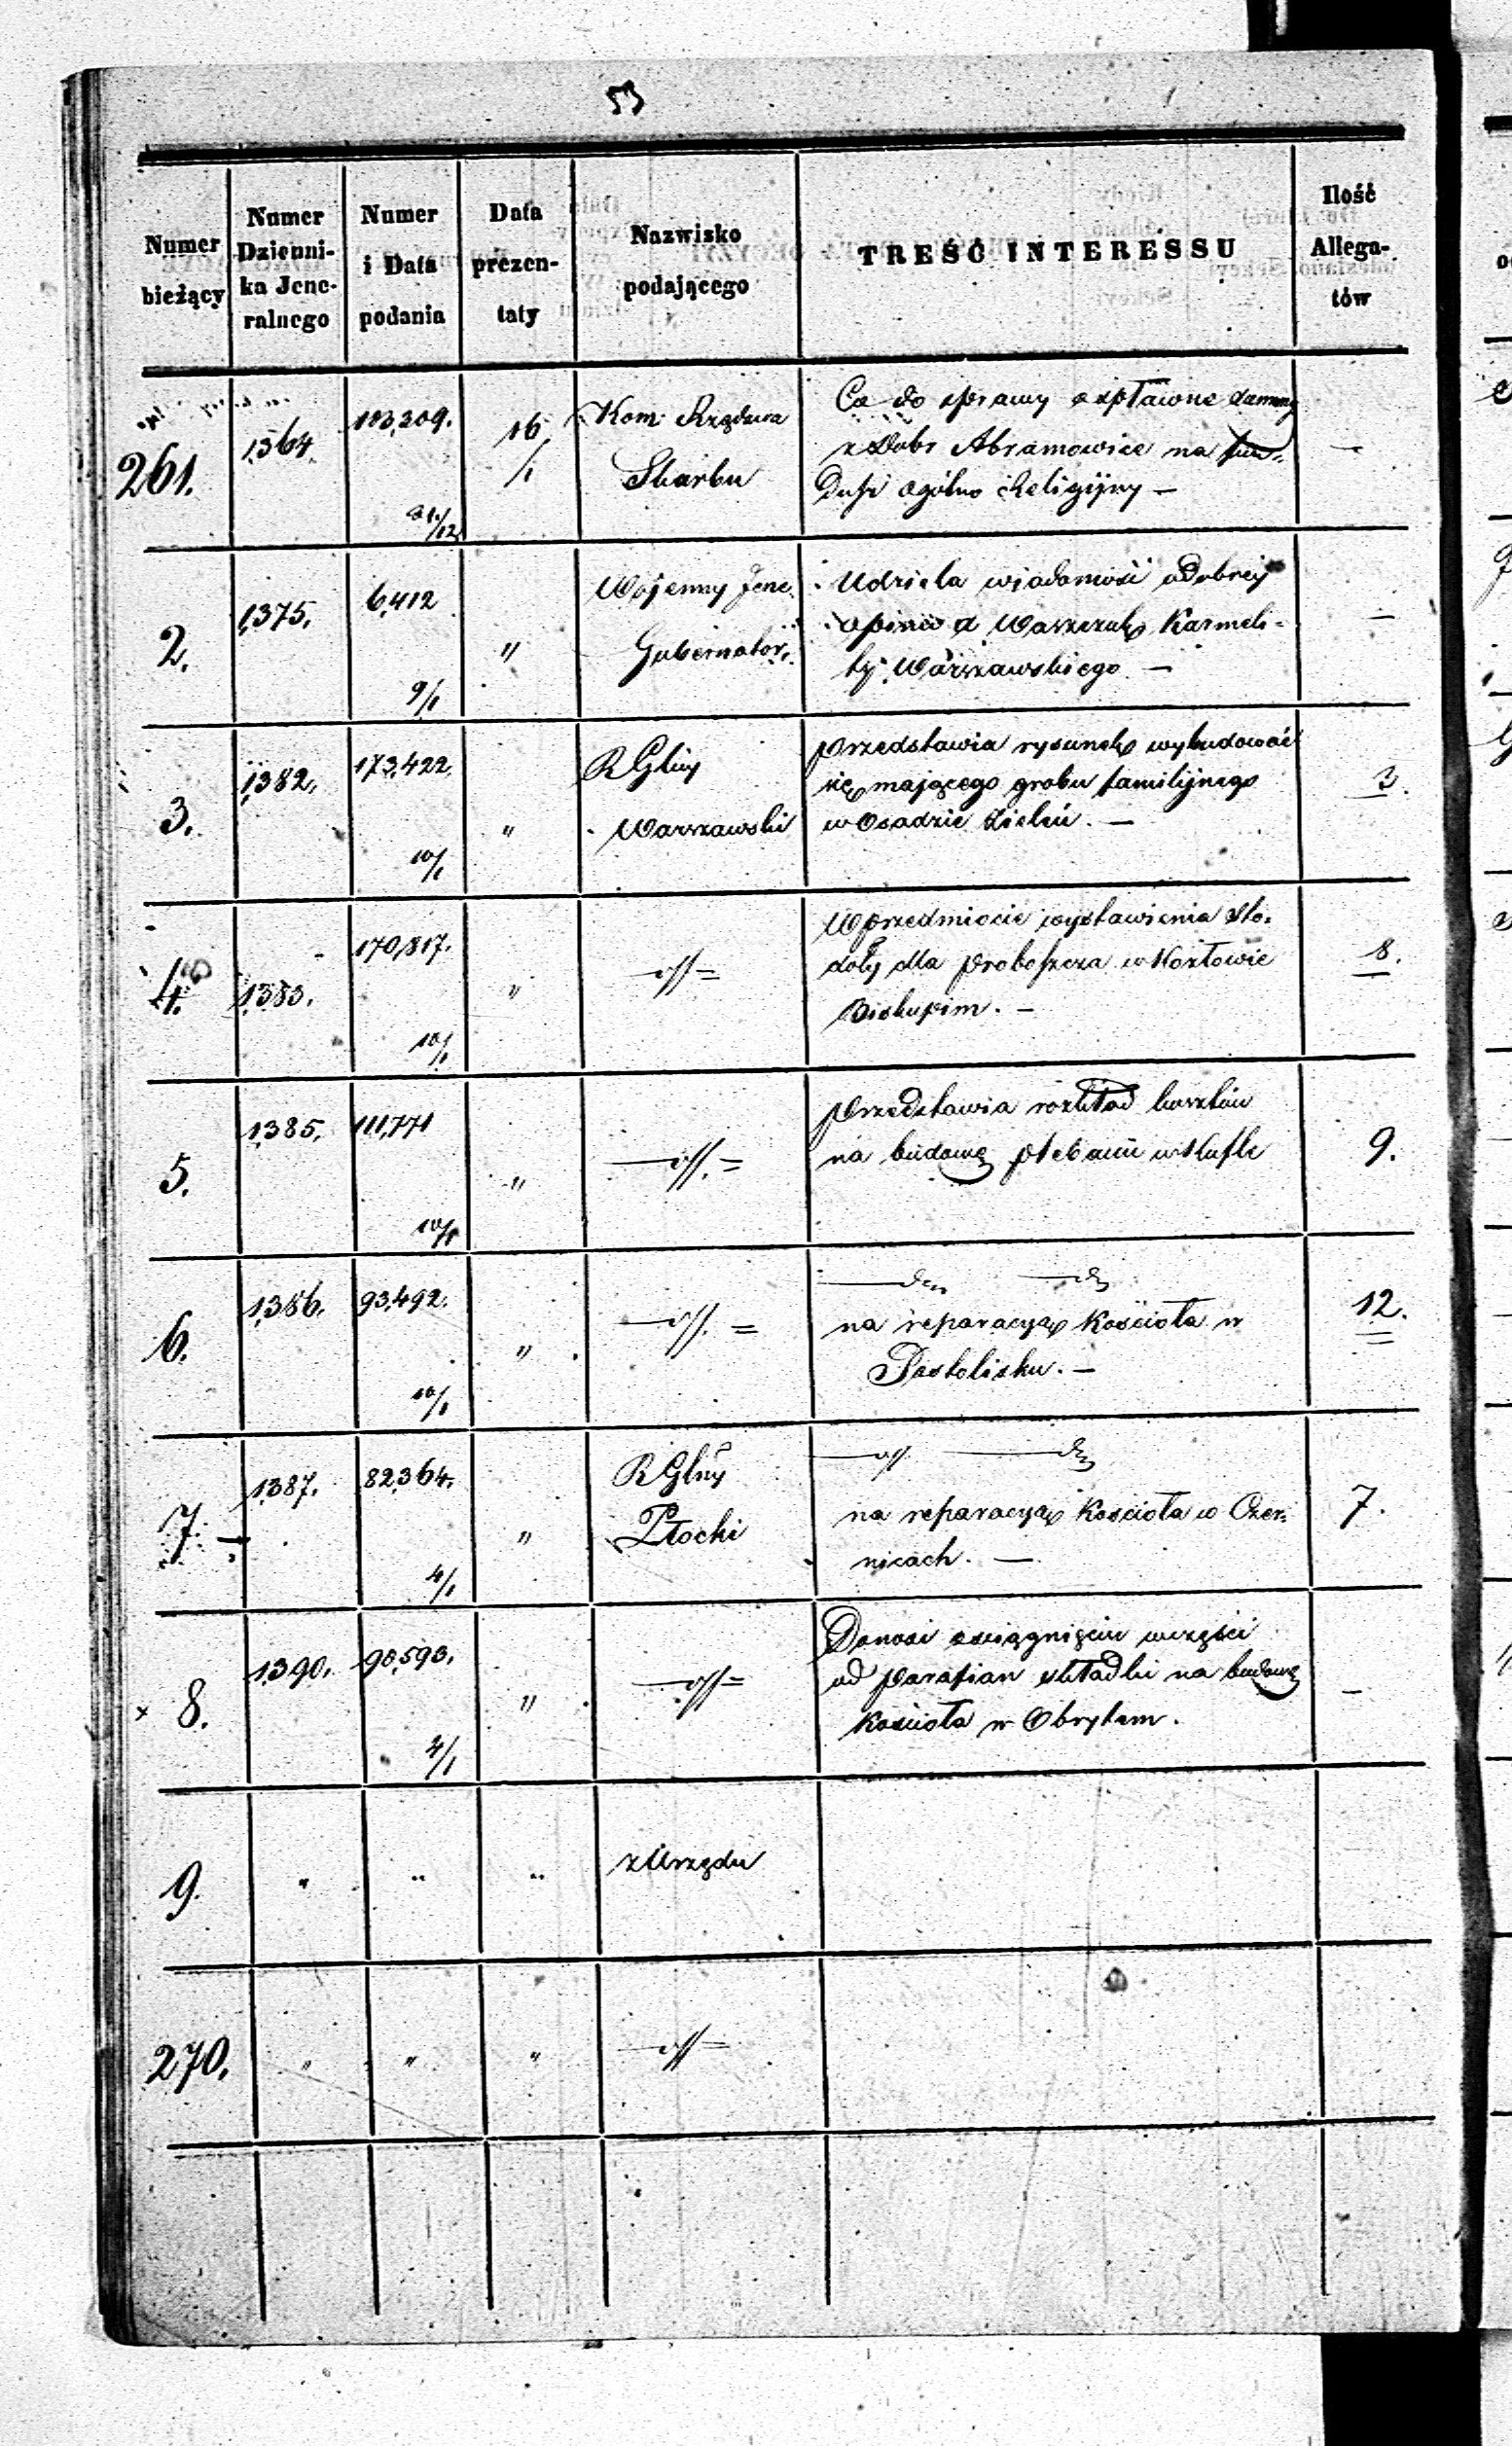 53
Numer bieżący
Numer Dzienni-ka Jene-ralnego
Numer i Data podania
Data prezen-taty
Nazwisko podającego
TREŚĆ INTERESSU
Ilość Allega-tów
261.
1364
103,209.
31/12
16/1
Kom: Rządowa
Skarbu
Co do sprawy o spławne daniny
z Dobr Abramowice na fun-
duſz ogólno Religijny —
—
2.
1375.
6,412
9/1
"
Wojenny Jene.
Gubernator.
Udziela wiadomość o dobrej
opinii X Karmeli-
ty Warszawskiego —
—
3.
1382.
173,422.
10/1
"
R Glny
Warszawski
przedstawia rysunek wybudować
się mającego grobu familijnego
w Osadzie Zieleń. —
3.
4.
1383.
170,817.
10/1
"
— =
W przedmiocie wystawienia sto-
doły dla proboſzcza w Kozłowie
Biskupim. —
8.
5.
1385.
111,771
10/1
"
— =
przedstawia rozkład kosztów
na budowę plebanii w Kuflu
9.
6.
1386.
93,492.
10/1
"
— =
na reparacyą Kościoła w
Postolisku. —
12.
7.
1387.
82,364.
4/1
"
R Glny
Płocki
na reparacyą Kościoła w Czer-
nicach. —
7.
x 8.
1390.
90,593.
4/1
"
— =
Donosi o ściągnięciu w części
od parafian składki na budowę
Kościoła w Obrytem.
—
9.
"
"
"
z Urzędu
270.
"
"
"
— =